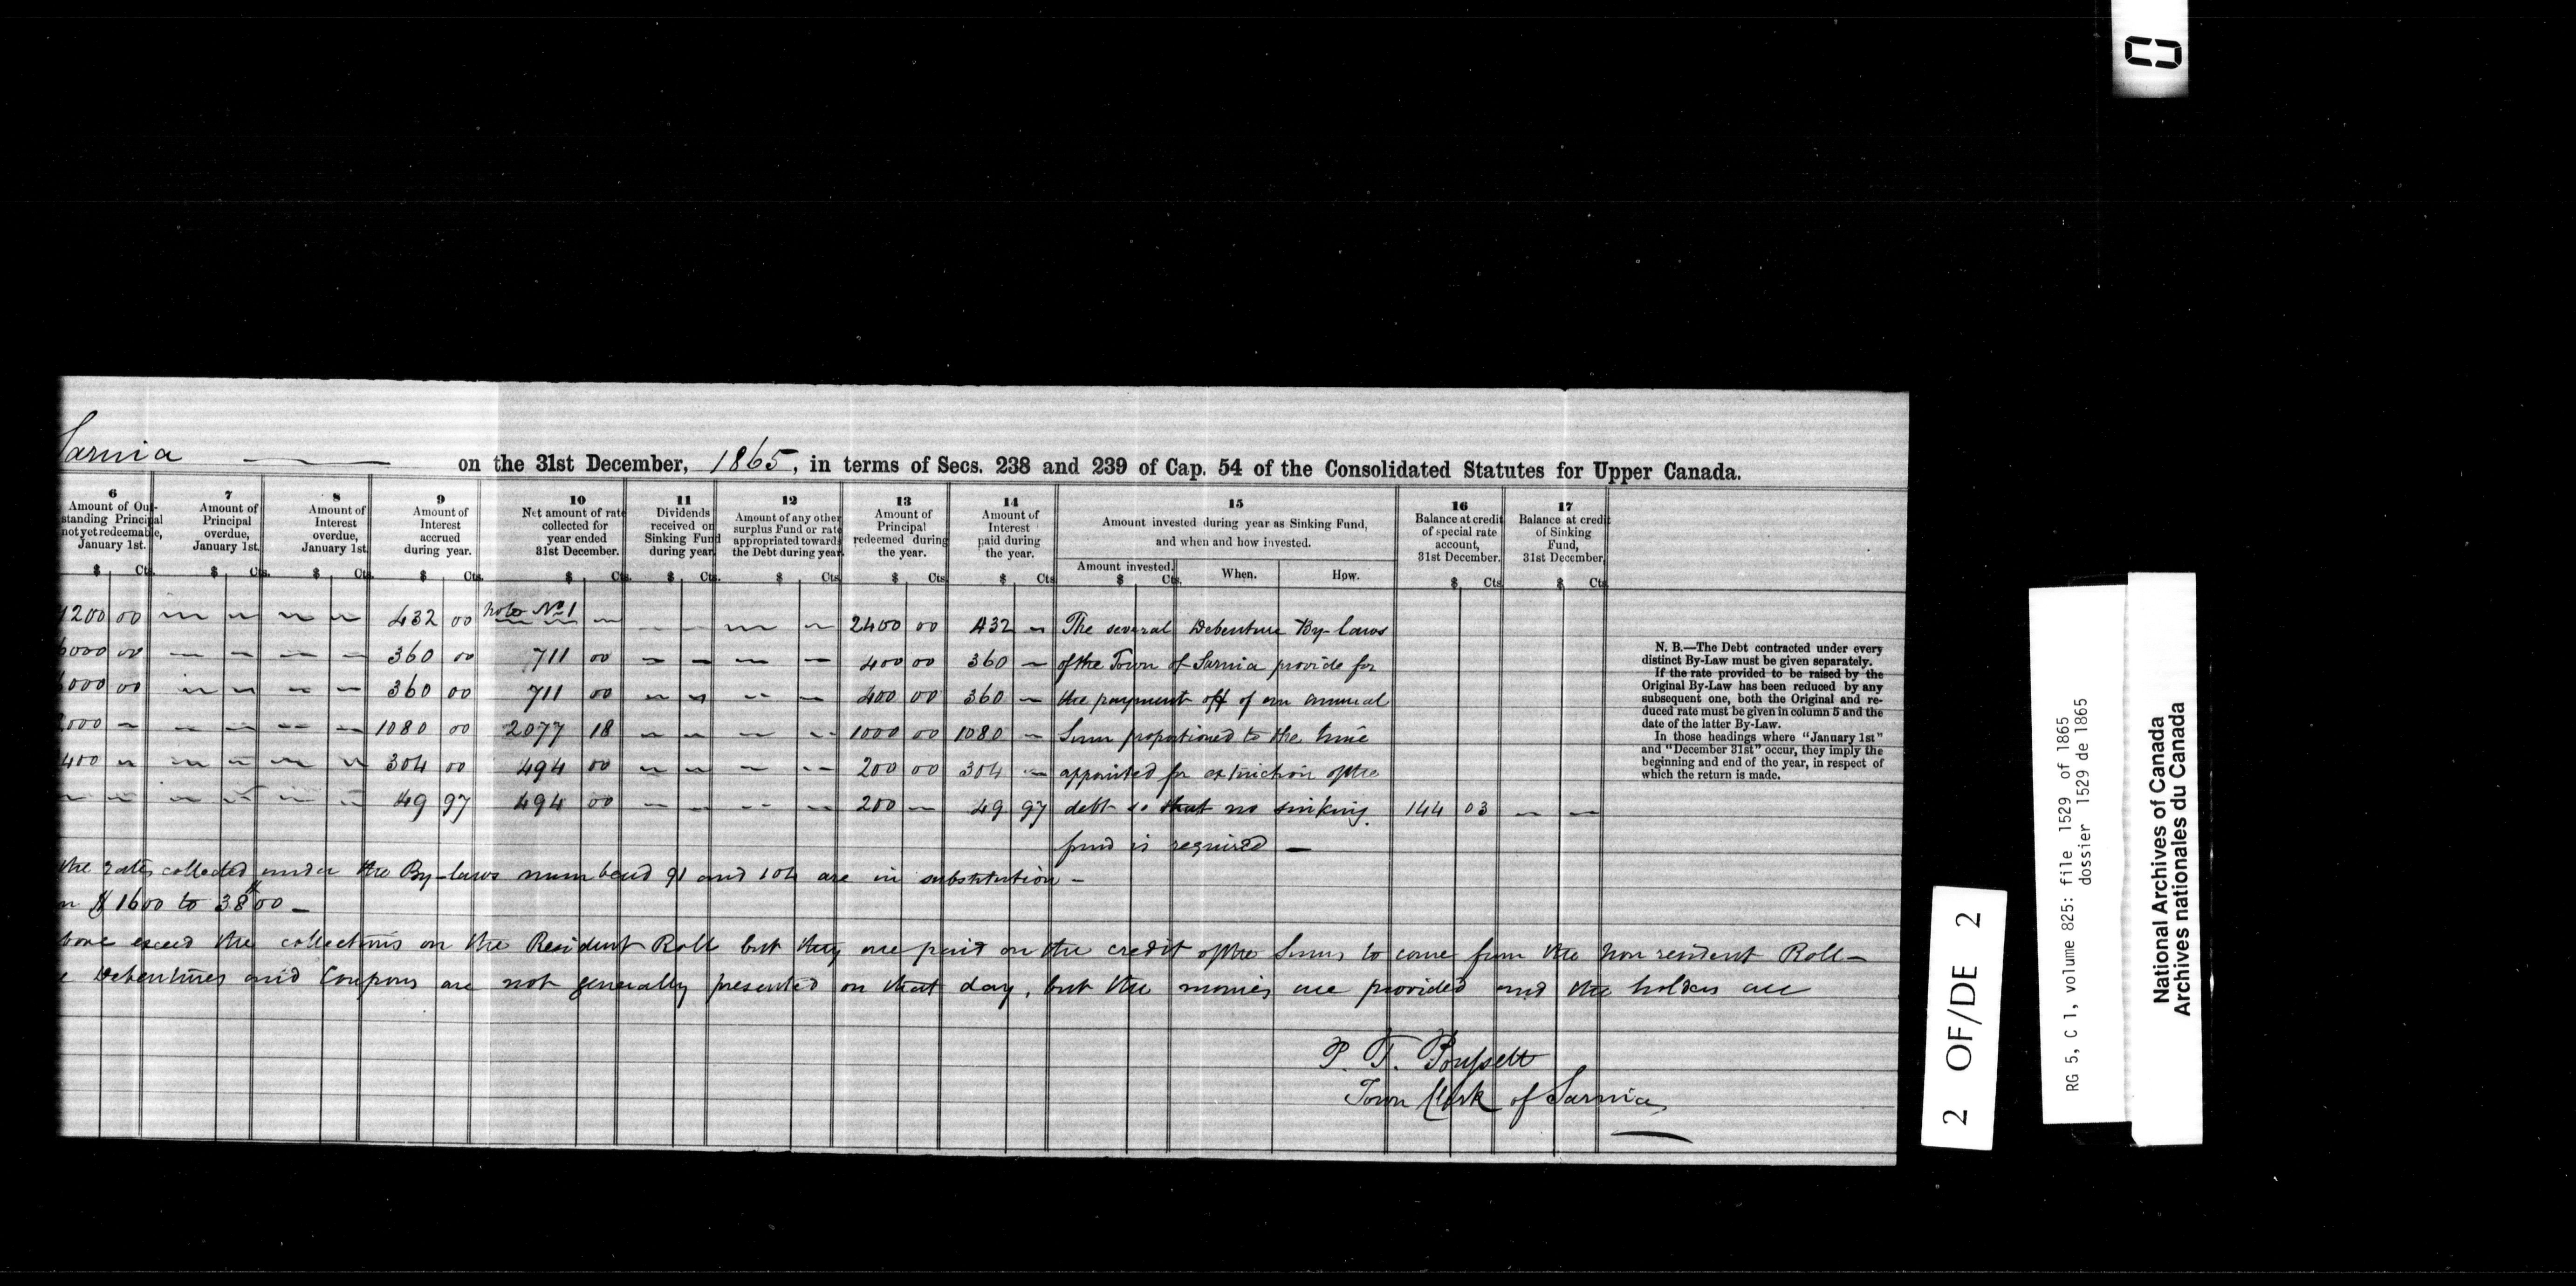 Sarnia — on the 31st December, 1865, in terms of Secs. 238 and 239 of Cap. 54 of the Consolidated Statutes for Upper Canada.
6 7 8 9 10 11 12 13 14 15 16 17
Amount of Outstanding Principal not yet redeemable, January 1st. $ Cts.
Amount of Principal overdue, January 1st. $ Cts.
Amount of Interest overdue, January 1st $ Cts.
Amount of Interest accrued during year. $ Cts.
Net amount of rate collected for year ended 31st December. $ Cts.
Dividends received on Sinking Fund during year $ Cts.
Amount of any other surplus Fund or rate appropriated towards the Debt during year. $ Cts
Amount of Principal redeemed during the year. $ Cts
Amount of Interest paid during the year. $ Cts
Amount invested during year as Sinking Fund, and when and how invested.
Amount invested. $ Cts. When. How.
Balance at credit of special rate account, 31st December. $ Cts
Balance at credit of Sinking Fund, 31st December $ Cts
7200 00 — — — — 432 00 Note No 1 — — — — — 2400 00 432 — The several Debenture By-laws
6000 00 — — — — 360 00 711 00 — — — — 400 00 360 — of the Town of Sarnia provide for
6000 00 — — — — 360 00 711 00 — — — — 400 00 360 — the payment off of an annual
000 — — — — — 1080 00 2077 18 — — — — 1000 00 1080 — Sum proportioned to the time
400 — — — — — 304 00 494 00 — — — — 200 00 304 — appointed for extinction of the
— — — — — — 49 97 494 00 — — — — 200 — 49 97 debt so that no sinking 144 03 — —
fund is required —
the rates collected under the By-laws numbered 91 and 104 are in substitution —
$1600 to 3800 —
exceed the collections on the Resident Roll but they are paid on the credit of the Sums to come from the non resident Roll —
Debentures and Coupons are not generally presented on that day, but the monies are provided and the holders are
P. T. Poussett
Town Clerk of Sarnia
N. B.—The Debt contracted under every
distinct By-Law must be given separately.
If the rate provided to be raised by the
Original By-Law has been reduced by any
subsequent one, both the Original and re-
duced rate must be given in column 5 and the
date of the latter By-Law.
In those headings where "January 1st"
and "December 31st" occur, they imply the
beginning and end of the year, in respect of
which the return is made.
2 OF/DE 2
RG 5, C 1, volume 825: file 1529 of 1865
dossier 1529 de 1865
National Archives of Canada
Archives nationales du Canada